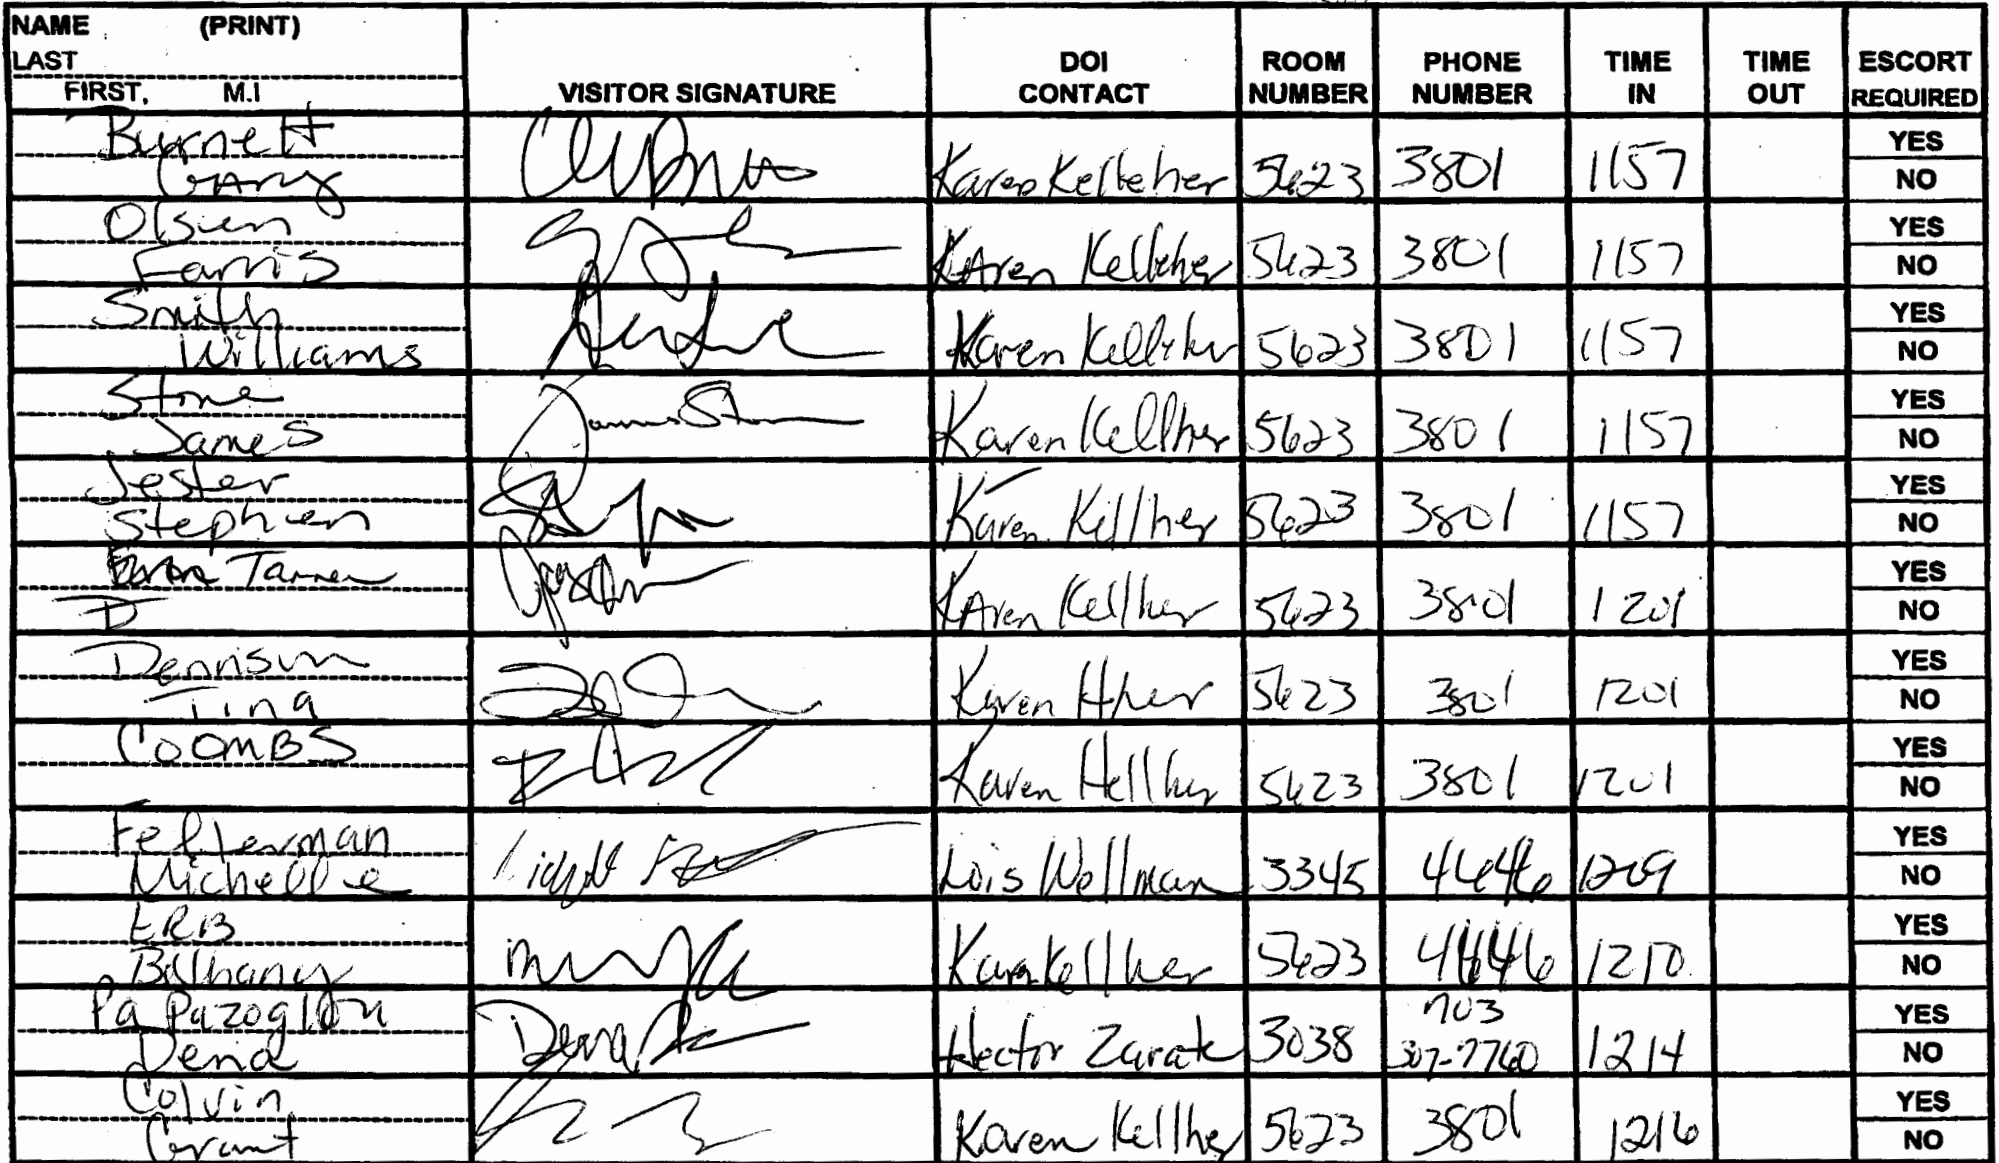 NAME (PRINT)
LAST
FIRST, M.I
VISITOR SIGNATURE
DOI CONTACT
ROOM NUMBER
PHONE NUMBER
TIME IN
TIME OUT
ESCORT REQUIRED
Burnett Gary Karen Kelleher 5623 3801 1157 YES NO
Olsen Farris Karen Kelleher 5623 3801 1157 YES NO
Smith Williams Karen Kelleher 5623 3801 1157 YES NO
Stone James James Stone Karen Kellher 5623 3801 1157 YES NO
Jester Stephen Karen Kellher 5623 3801 1157 YES NO
D Karen Kellher 5623 3801 1201 YES NO
Dennison Tina Karen 5623 3801 1201 YES NO
COOMBS Karen Hellher 5623 3801 1201 YES NO
Fetterman Michelle Lois Wellman 3345 4646 1209 YES NO
ERB Bethany Karen Kellher 5623 4646 1210 YES NO
Papazoglou Dena Dena Hector Zarate 3038 703 307-7760 1214 YES NO
Colvin Grant Karen Kellher 5623 3801 1216 YES NO